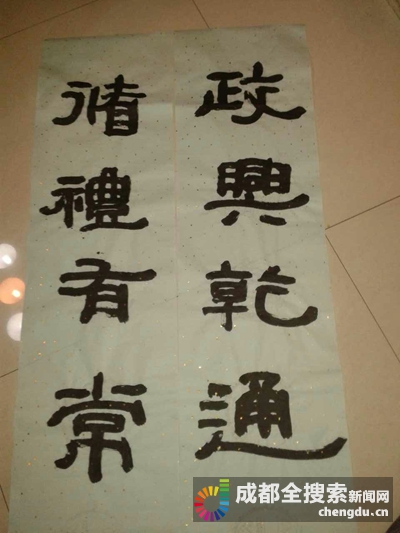 政興乾通
循禮有常
成都全搜索新闻网
chengdu.cn